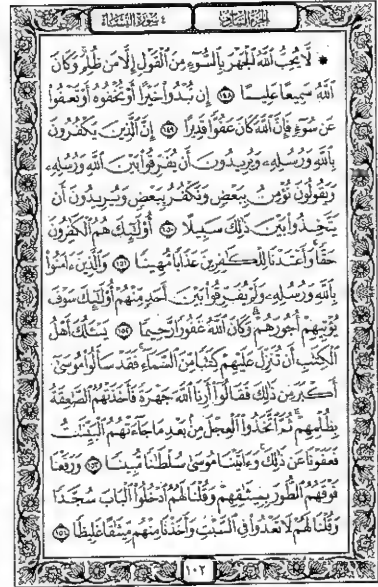 الجزء السادس ٤ سورة النساء
۞ لَّا يُحِبُّ ٱللَّهُ ٱلْجَهْرَ بِٱلسُّوٓءِ مِنَ ٱلْقَوْلِ إِلَّا مَن ظُلِمَ وَكَانَ
ٱللَّهُ سَمِيعًا عَلِيمًا ١٤٨ إِن تُبْدُوا۟ خَيْرًا أَوْ تُخْفُوهُ أَوْ تَعْفُوا۟
عَن سُوٓءٍ فَإِنَّ ٱللَّهَ كَانَ عَفُوًّا قَدِيرًا ١٤٩ إِنَّ ٱلَّذِينَ يَكْفُرُونَ
بِٱللَّهِ وَرُسُلِهِۦ وَيُرِيدُونَ أَن يُفَرِّقُوا۟ بَيْنَ ٱللَّهِ وَرُسُلِهِۦ
وَيَقُولُونَ نُؤْمِنُ بِبَعْضٍ وَنَكْفُرُ بِبَعْضٍ وَيُرِيدُونَ أَن
يَتَّخِذُوا۟ بَيْنَ ذَٰلِكَ سَبِيلًا ١٥٠ أُو۟لَٰٓئِكَ هُمُ ٱلْكَٰفِرُونَ
حَقًّا وَأَعْتَدْنَا لِلْكَٰفِرِينَ عَذَابًا مُّهِينًا ١٥١ وَٱلَّذِينَ ءَامَنُوا۟
بِٱللَّهِ وَرُسُلِهِۦ وَلَمْ يُفَرِّقُوا۟ بَيْنَ أَحَدٍ مِّنْهُمْ أُو۟لَٰٓئِكَ سَوْفَ
يُؤْتِيهِمْ أُجُورَهُمْ وَكَانَ ٱللَّهُ غَفُورًا رَّحِيمًا ١٥٢ يَسْـَٔلُكَ أَهْلُ
ٱلْكِتَٰبِ أَن تُنَزِّلَ عَلَيْهِمْ كِتَٰبًا مِّنَ ٱلسَّمَآءِ فَقَدْ سَأَلُوا۟ مُوسَىٰٓ
أَكْبَرَ مِن ذَٰلِكَ فَقَالُوٓا۟ أَرِنَا ٱللَّهَ جَهْرَةً فَأَخَذَتْهُمُ ٱلصَّٰعِقَةُ
بِظُلْمِهِمْ ثُمَّ ٱتَّخَذُوا۟ ٱلْعِجْلَ مِنۢ بَعْدِ مَا جَآءَتْهُمُ ٱلْبَيِّنَٰتُ
فَعَفَوْنَا عَن ذَٰلِكَ وَءَاتَيْنَا مُوسَىٰ سُلْطَٰنًا مُّبِينًا ١٥٣ وَرَفَعْنَا
فَوْقَهُمُ ٱلطُّورَ بِمِيثَٰقِهِمْ وَقُلْنَا لَهُمُ ٱدْخُلُوا۟ ٱلْبَابَ سُجَّدًا
وَقُلْنَا لَهُمْ لَا تَعْدُوا۟ فِى ٱلسَّبْتِ وَأَخَذْنَا مِنْهُم مِّيثَٰقًا غَلِيظًا ١٥٤
١٠٢